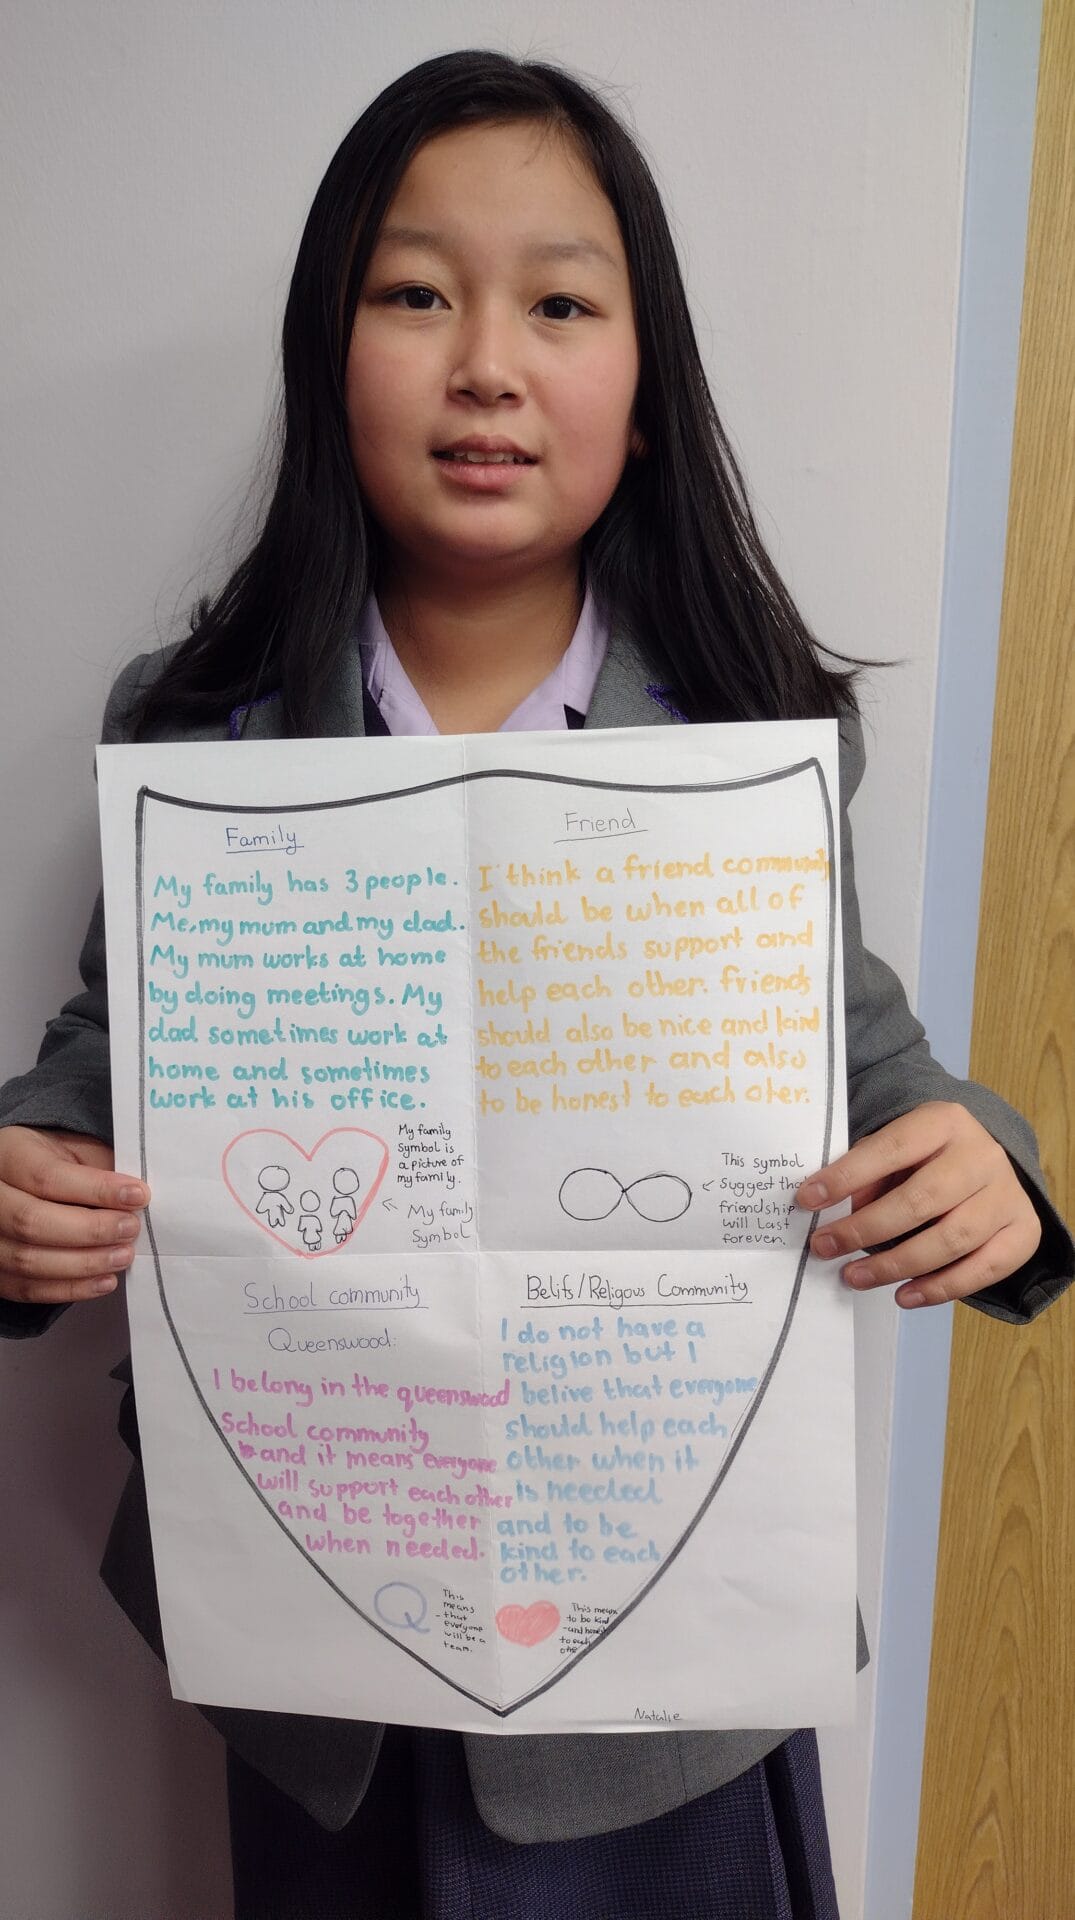 Family
My family has 3 people.
Me, my mum and my dad.
My mum works at home
by doing meetings. My
dad sometimes work at
home and sometimes
work at his office.
My family
Symbol is
a picture of
my family.
My family
Symbol
Friend
I think a friend community
should be when all of
the friends support and
help each other. friends
should also be nice and kind
to each other and also
to be honest to each oter.
This symbol
suggest that
friendship
will last
forever.
School community
Queenswood:
I belong in the queenswood
School community
and it means everyone
will support each other
and be together
when needed.
Q
This
means
that
everyone
will be a
team.
Belifs/Religous Community
I do not have a
religion but I
belive that everyone
should help each
other when it
is needed
and to be
kind to each
other.
This means
to be kind
and honest
to each
othe
Natalie